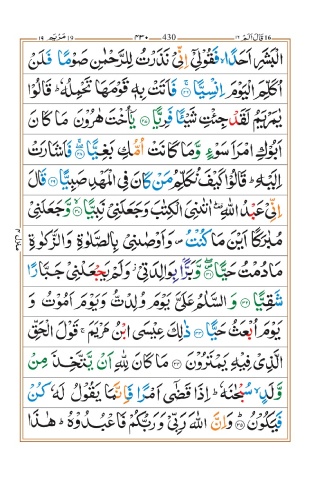 ١٩ مَرْيَم ١٩ ٤٣٠ 430 قَالَ اَلَمْ ١٦ 16
الْبَشَرِ اَحَدًاۙ فَقُوْلِيْۤ اِنِّيْ نَذَرْتُ لِلرَّحْمٰنِ صَوْمًا فَلَنْ
اُكَلِّمَ الْيَوْمَ اِنْسِيًّاۚ ۲۶ فَاَتَتْ بِهٖ قَوْمَهَا تَحْمِلُهٗؕ قَالُوْا
يٰمَرْيَمُ لَقَدْ جِئْتِ شَيْـًٔا فَرِيًّا ۲۷ يٰۤاُخْتَ هٰرُوْنَ مَا كَانَ
اَبُوْكِ امْرَاَ سَوْءٍ وَّمَا كَانَتْ اُمُّكِ بَغِيًّاۖۚ ۲۸ فَاَشَارَتْ
اِلَيْهِؕ قَالُوْا كَيْفَ نُكَلِّمُ مَنْ كَانَ فِي الْمَهْدِ صَبِيًّا ۲۹ قَالَ
اِنِّيْ عَبْدُ اللّٰهِؕ اٰتٰىنِيَ الْكِتٰبَ وَجَعَلَنِيْ نَبِيًّاۙ ۳۰ وَّجَعَلَنِيْ
مُبٰرَكًا اَيْنَ مَا كُنْتُ۪ وَاَوْصٰنِيْ بِالصَّلٰوةِ وَالزَّكٰوةِ
مَا دُمْتُ حَيًّاۖ ۳۱ وَّبَرًّۢا بِوَالِدَتِيْؗ وَلَمْ يَجْعَلْنِيْ جَبَّارًا
شَقِيًّا ۳۲ وَالسَّلٰمُ عَلَيَّ يَوْمَ وُلِدْتُّ وَيَوْمَ اَمُوْتُ وَ
يَوْمَ اُبْعَثُ حَيًّا ۳۳ ذٰلِكَ عِيْسَى ابْنُ مَرْيَمَۚ قَوْلَ الْحَقِّ
الَّذِيْ فِيْهِ يَمْتَرُوْنَ ۳۴ مَا كَانَ لِلّٰهِ اَنْ يَّتَّخِذَ مِنْ
وَّلَدٍۙ سُبْحٰنَهٗؕ اِذَا قَضٰۤى اَمْرًا فَاِنَّمَا يَقُوْلُ لَهٗ كُنْ
فَيَكُوْنُؕ ۳۵ وَاِنَّ اللّٰهَ رَبِّيْ وَرَبُّكُمْ فَاعْبُدُوْهُؕ هٰذَا